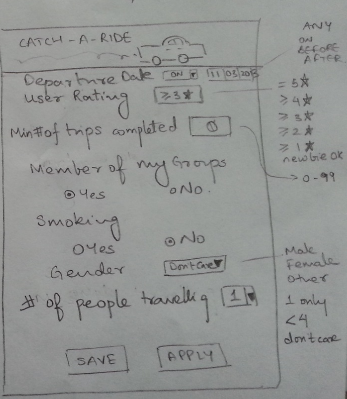 CATCH-A-RIDE
Departure Date ON 11/03/2013
User Rating ≥3★
Min # of trips completed 0
Member of my Groups
Yes No.
Smoking
Yes No
Gender Dont Care
# of people travellig 1
SAVE APPLY
ANY
ON
BEFORE
AFTER
= 5★
≥ 4★
≥ 3★
≥ 2★
≥ 1★
newbie ok
0-99
Male
Female
Other
1 only
<4
dont care